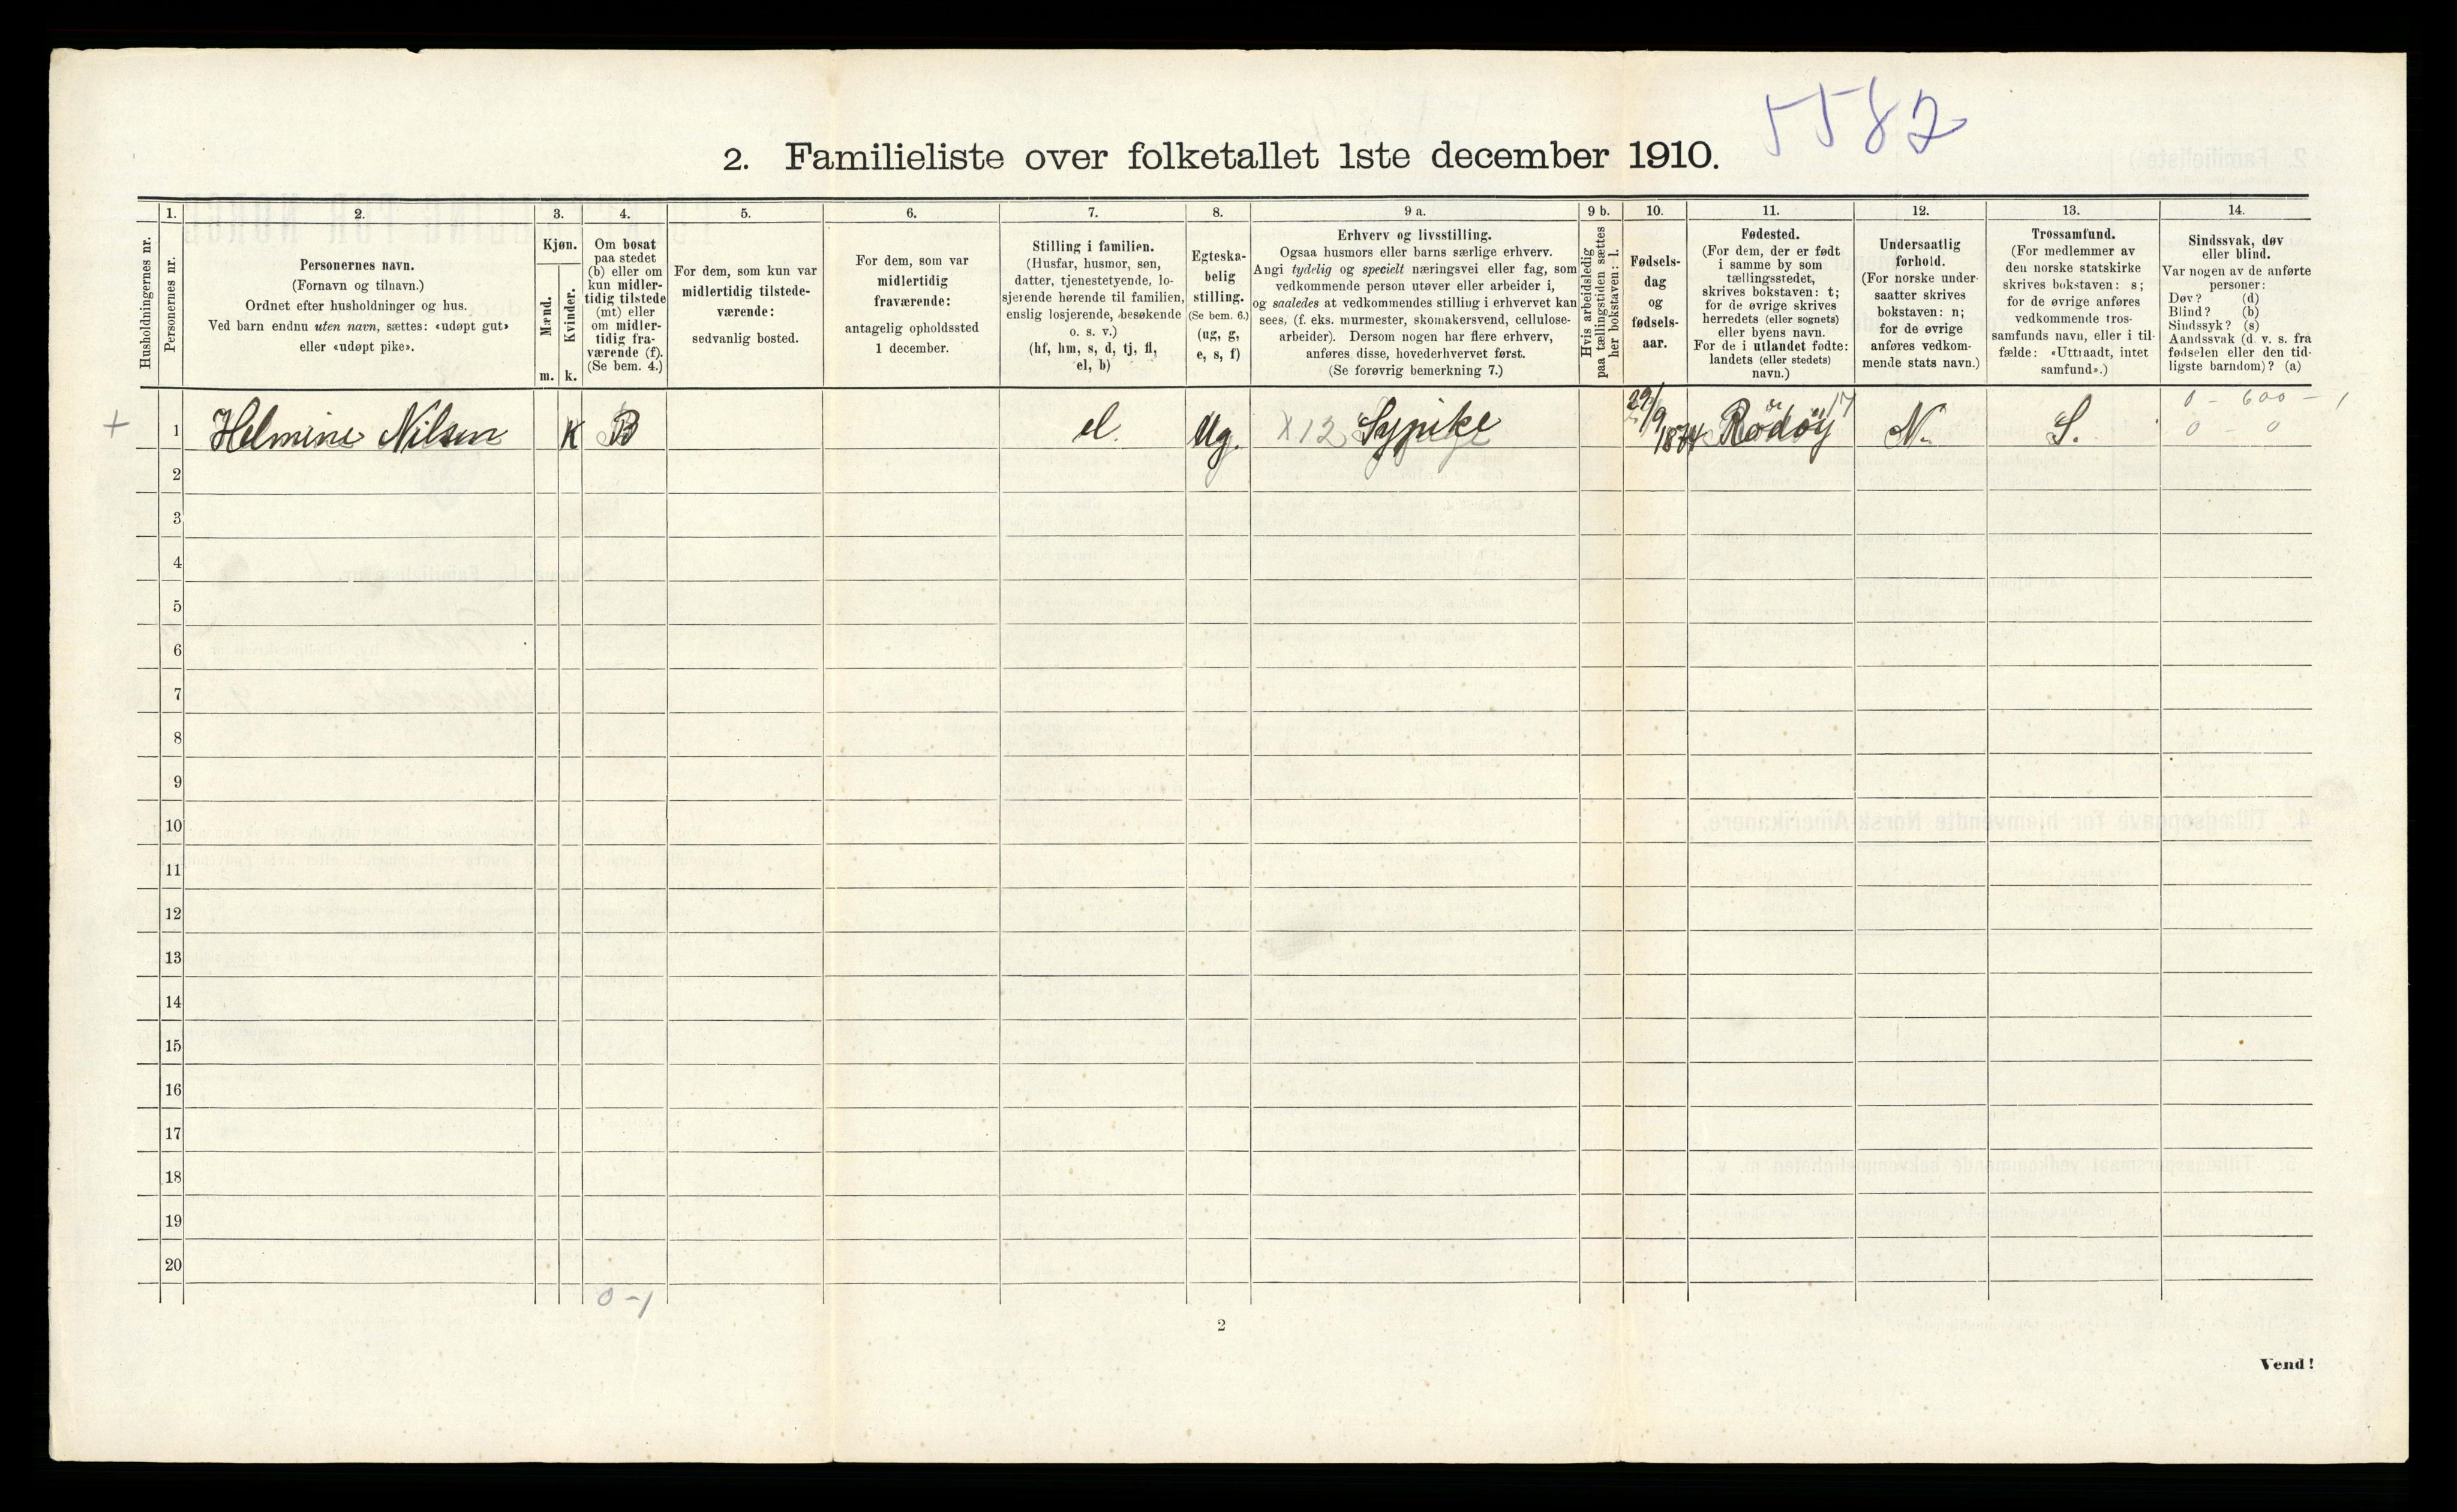 5582
2. Familieliste over folketallet 1ste december 1910.
1. 2. 3. 4. 5. 6. 7. 8. 9 a. 9 b. 10. 11. 12. 13. 14.
Husholdningernes nr.
Personernes nr.
Personernes navn.
(Fornavn og tilnavn.)
Ordnet efter husholdninger og hus.
Ved barn endnu uten navn, sættes: «udøpt gut»
eller «udøpt pike».
Kjøn.
Mænd.
Kvinder.
m. k.
Om bosat
paa stedet
(b) eller om
kun midler-
tidig tilstede
(mt) eller
om midler-
tidig fra-
værende (f).
(Se bem. 4.)
For dem, som kun var
midlertidig tilstede-
værende:
sedvanlig bosted.
For dem, som var
midlertidig
fraværende:
antagelig opholdssted
1 december.
Stilling i familien.
(Husfar, husmor, søn,
datter, tjenestetyende, lo-
sjerende hørende til familien,
enslig losjerende, besøkende
o. s. v.)
(hf, hm, s, d, tj, fl,
el, b)
Egteska-
belig
stilling.
(Se bem. 6.)
(ug, g,
e, s, f)
Erhverv og livsstilling.
Ogsaa husmors eller barns særlige erhverv.
Angi tydelig og specielt næringsvei eller fag, som
vedkommende person utøver eller arbeider i,
og saaledes at vedkommendes stilling i erhvervet kan
sees, (f. eks. murmester, skomakersvend, cellulose-
arbeider). Dersom nogen har flere erhverv,
anføres disse, hovederhvervet først.
(Se forøvrig bemerkning 7.)
Hvis arbeidsledig
paa tællingstiden sættes
her bokstaven: l.
Fødsels-
dag
og
fødsels-
aar.
Fødested.
(For dem, der er født
i samme by som
tællingsstedet,
skrives bokstaven: t;
for de øvrige skrives
herredets (eller sognets)
eller byens navn.
For de i utlandet fødte:
landets (eller stedets)
navn.)
Undersaatlig
forhold.
(For norske under-
saatter skrives
bokstaven: n;
for de øvrige
anføres vedkom-
mende stats navn.)
Trossamfund.
(For medlemmer av
den norske statskirke
skrives bokstaven: s;
for de øvrige anføres
vedkommende tros-
samfunds navn, eller i til-
fælde: «Uttraadt, intet
samfund».)
Sindssvak, døv
eller blind.
Var nogen av de anførte
personer:
Døv? (d)
Blind? (b)
Sindssyk? (s)
Aandssvak (d. v. s. fra
fødselen eller den tid-
ligste barndom)? (a)
17 0 - 600 - 1
+ 1 Helmine Nilsen K B el. Ug. X 12 Sypike 29/9 1874 Rödöy N. S. 0 - 0
2
3
4
5
6
7
8
9
10
11
12
13
14
15
16
17
18
19
20
0-1
2
Vend!